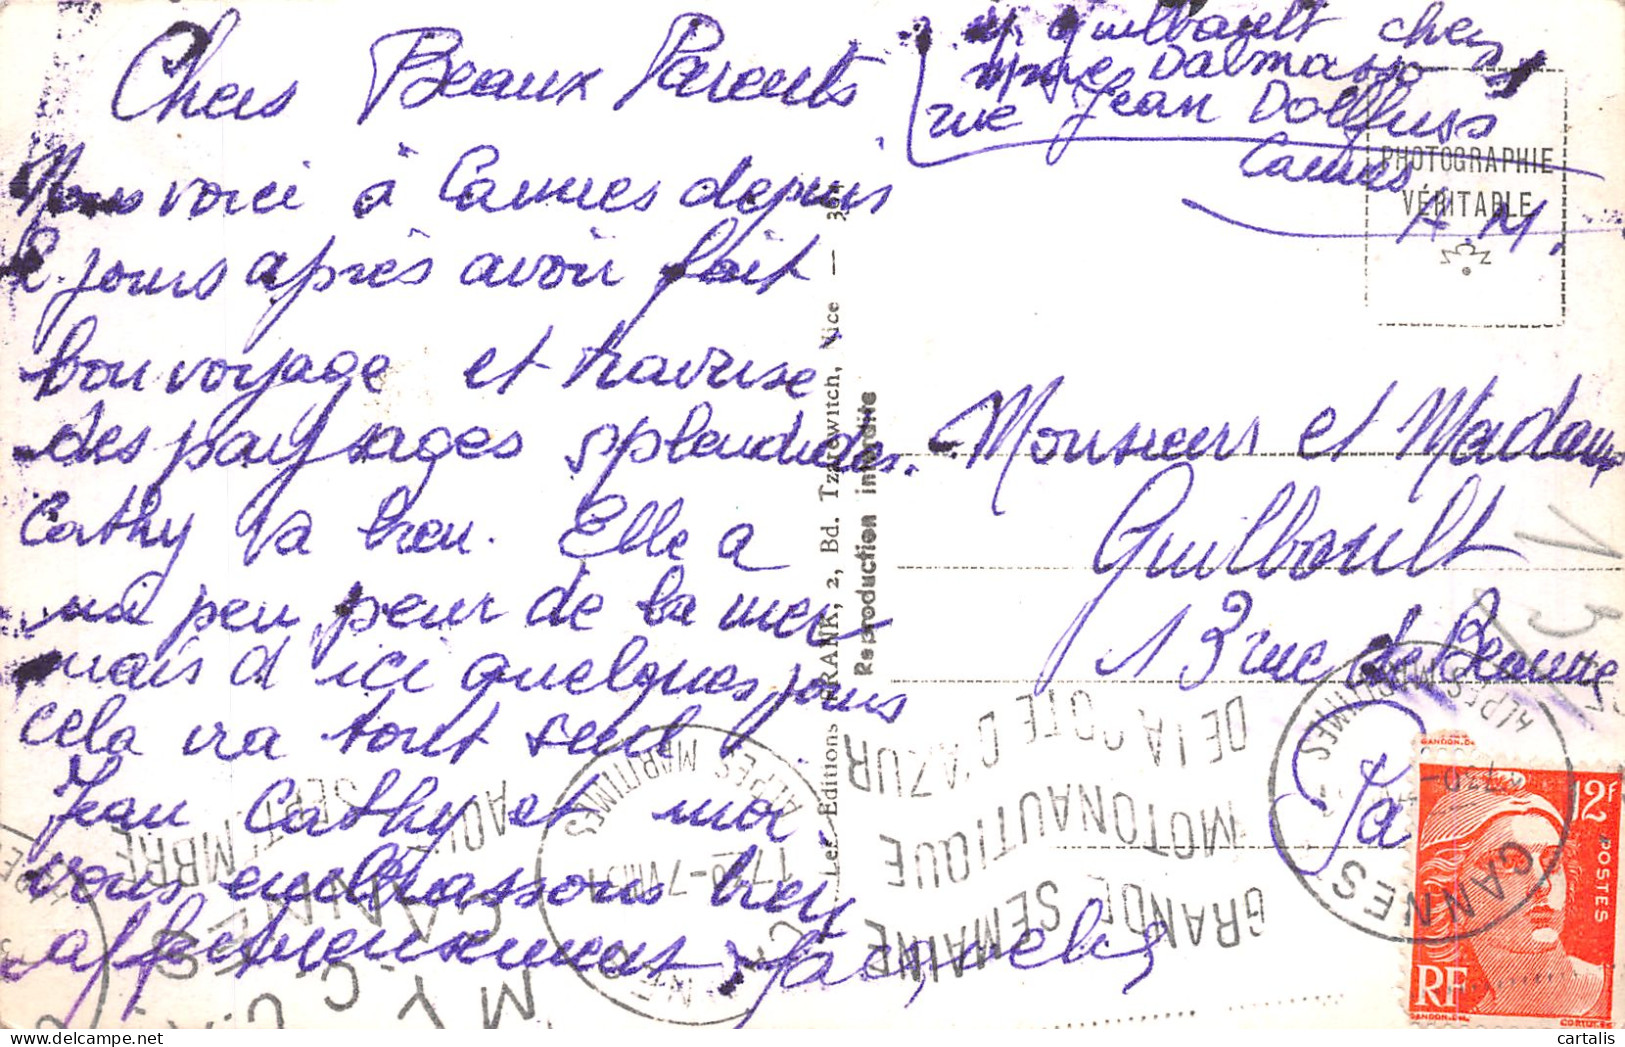 Chers Beaux Parents
Nous voici à Cannes depuis
2 jours après avoir fait
bon voyage et traversé
des paysages splendides.
Cathy va bien. Elle a
un peu peur de la mer
mais d'ici quelques jours
cela ira tout seul.
Jean Cathy et moi
vous embrassons bien
affectueusement Jacqueline
Guilbault chez
Mme Dalmasso
rue Jean Dollfuss
Cannes
A.M.
PHOTOGRAPHIE
VÉRITABLE
Monsieur et Madame
Guilbault
13 rue de Beaune
Les Editions FRANK, 2, Bd. Tzarewitch, Nice
Reproduction interdite
GRANDE SEMAINE
MOTONAUTIQUE
DE LA COTE D'AZUR
CANNES
ALPES MARITIMES
CANNES
ALPES MARITIMES
AOUT
SEPTEMBRE
CANNES
2F
POSTES
RF
GANDON.DEL
cartalis